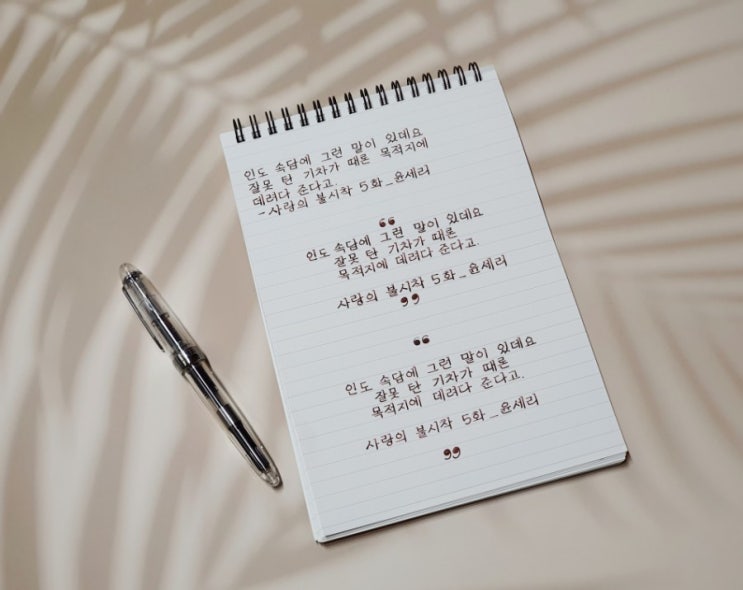 인도 속담에 그런 말이 있데요
잘못 탄 기차가 때론 목적지에
데려다 준다고.
- 사랑의 불시착 5화_윤세리
❝
인도 속담에 그런 말이 있데요
잘못 탄 기차가 때론
목적지에 데려다 준다고.
사랑의 불시착 5화_윤세리
❞
❝
인도 속담에 그런 말이 있데요
잘못 탄 기차가 때론
목적지에 데려다 준다고.
사랑의 불시착 5화_윤세리
❞